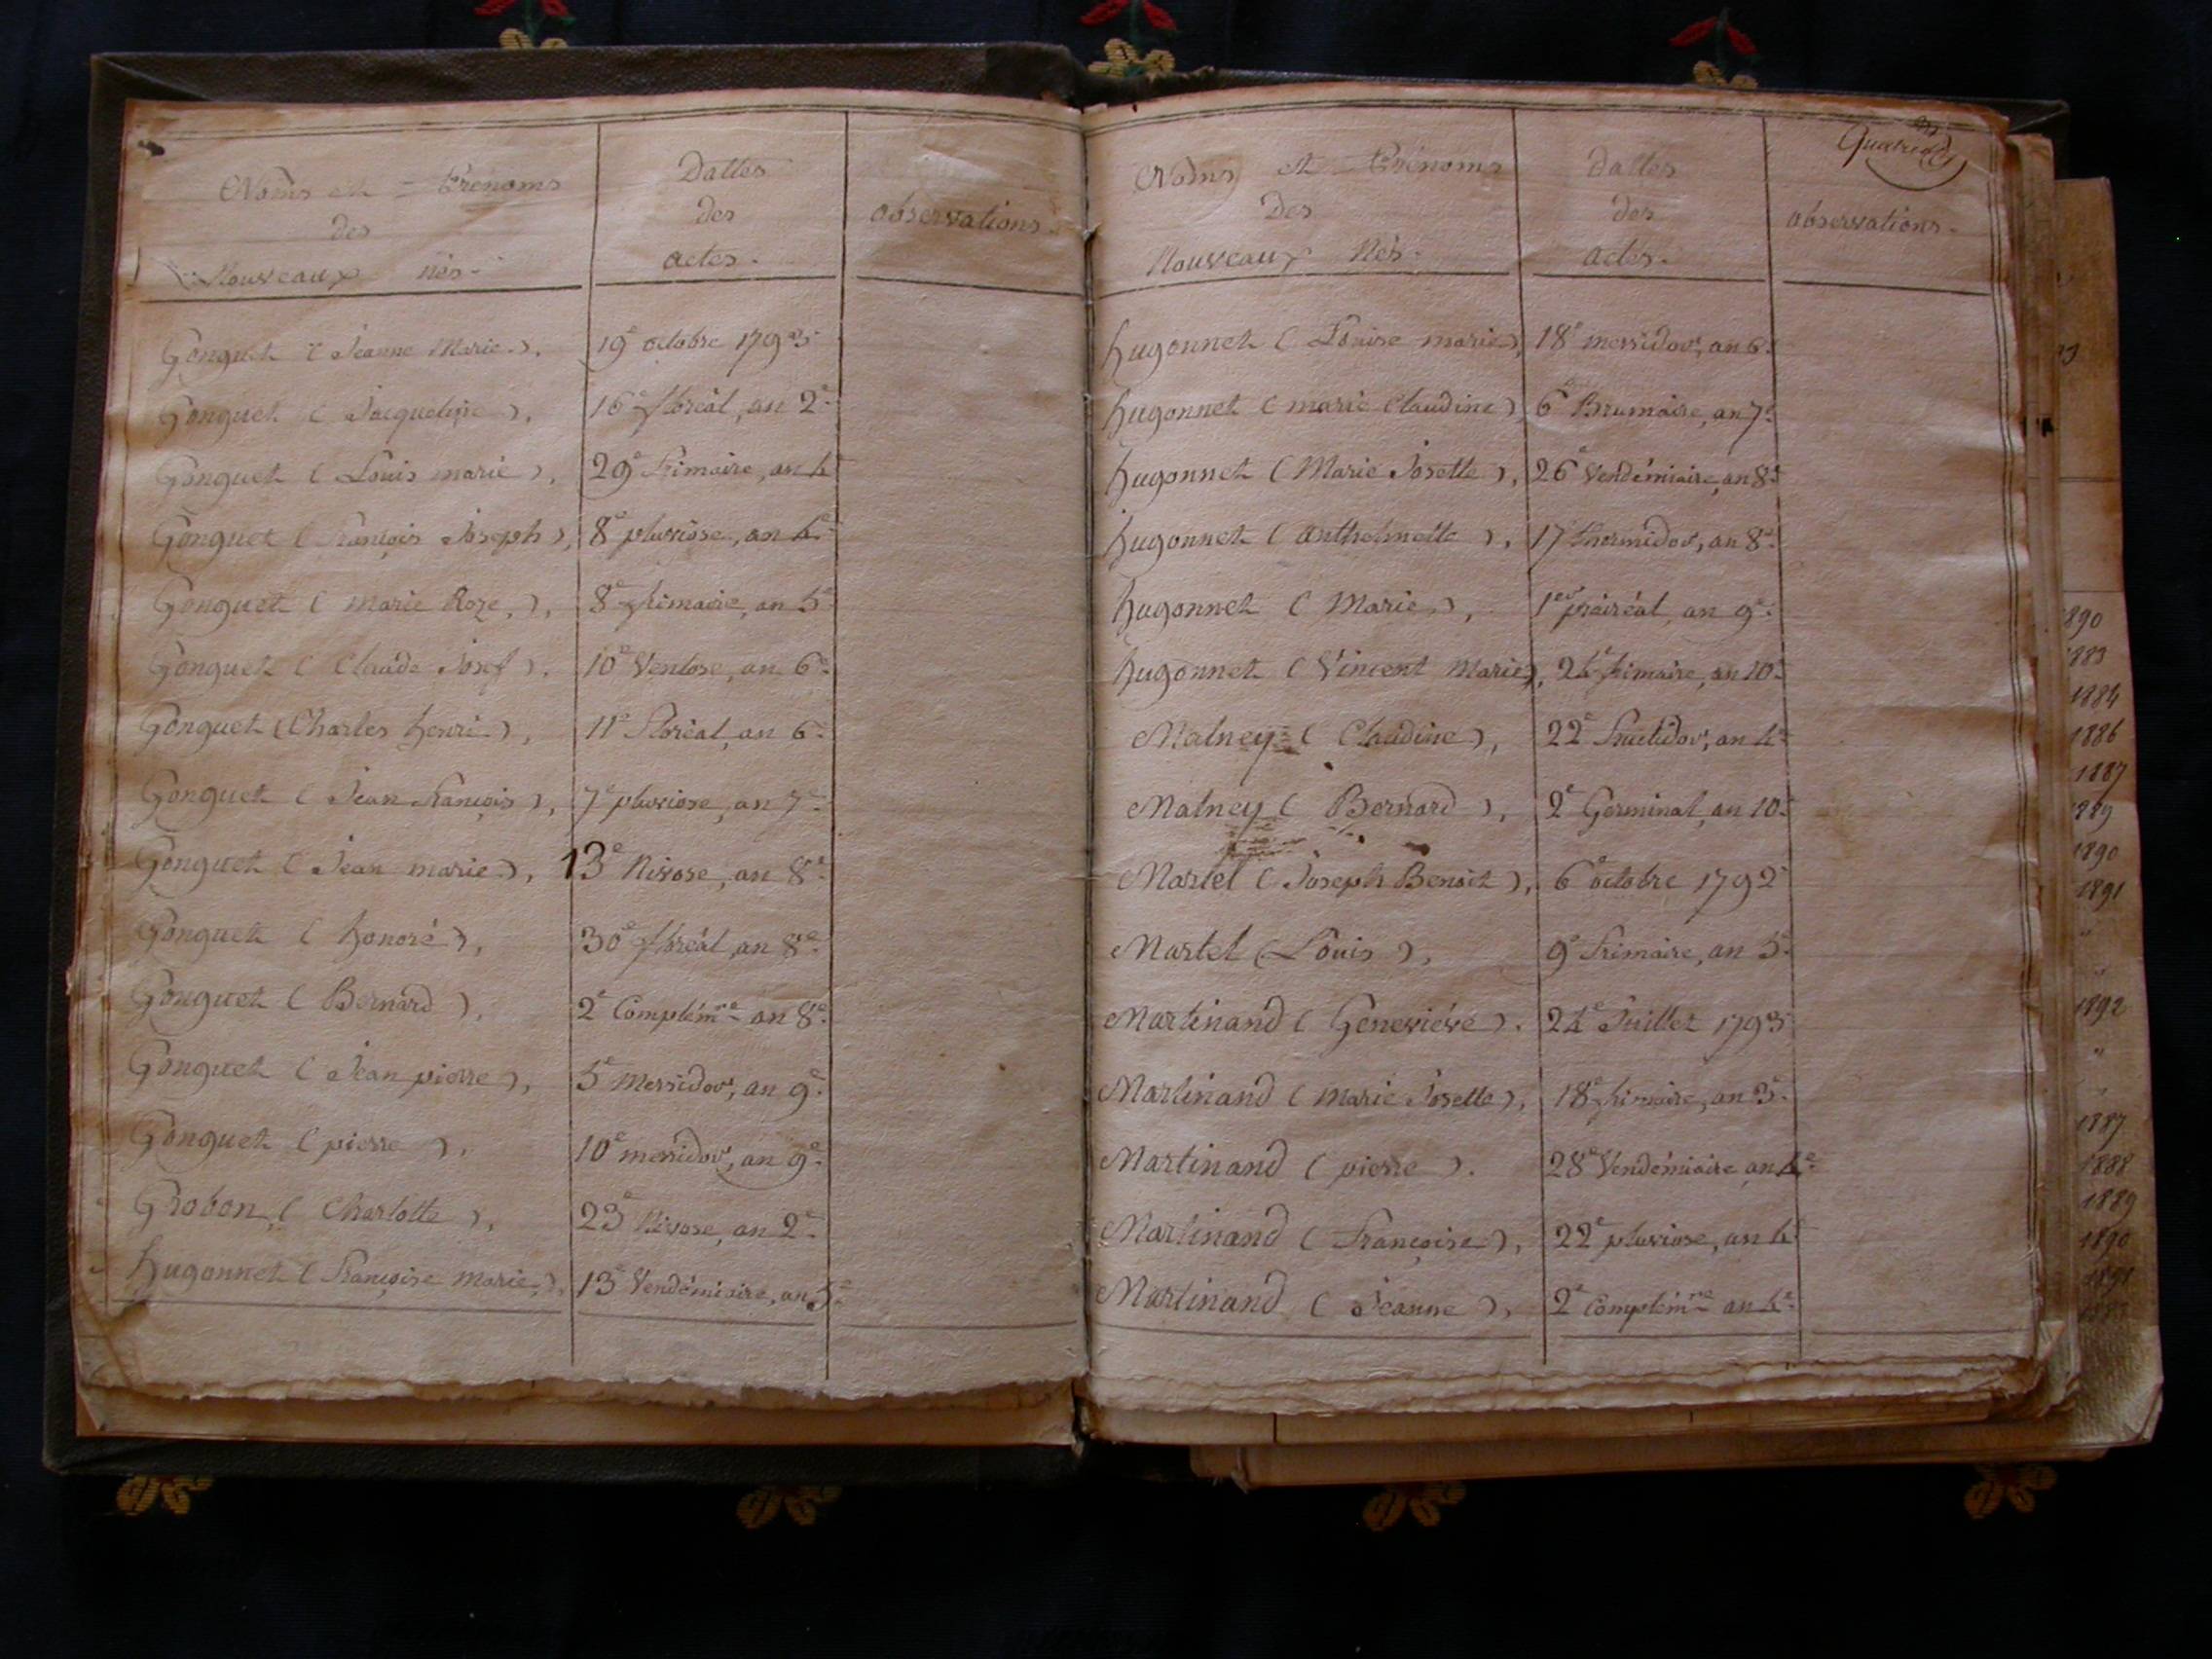 Noms et Prénoms
des
Nouveaux nés.
Dattes
des
actes.
observations.
Gonguet (Jeanne Marie), 19e octobre 1793
Gonguet (Jacqueline), 16e floréal, an 2e
Gonguet (Louis marie), 29e Frimaire, an 4e
Gonguet (François Joseph), 8e pluviôse, an 4e
Gonguet (Marie Roze,), 8e frimaire, an 5e
Gonguet (Claude Josef), 10e Ventose, an 6e
Gonguet (Charles henri), 11e Floréal, an 6e
Gonguet (Jean François), 7e pluviose, an 7e
Gonguet (Jean marie), 13e Nivose, an 8e
Gonguet (honoré), 30e floréal, an 8e
Gonguet (Bernard), 2e Complémre an 8e
Gonguet (Jean pierre), 5e Messidor, an 9e
Gonguet (pierre), 10e messidor, an 9e
Grobon, (Charlotte), 23e Nivose, an 2e
hugonnet (Françoise Marie), 13e Vendémiaire, an 5e
Noms et Prénoms
Des
Nouveaux Nés.
Dattes
des
actes.
observations.
hugonnet (Louise marie), 18e messidor, an 6e
hugonnet (marie Claudine) 6e Brumaire, an 7e
hugonnet (Marie Josette), 26e Vendémiaire, an 8e
hugonnet (anthelmette), 17e thermidor, an 8e
hugonnet (Marie), 1er prairéal, an 9e
hugonnet (Vincent Marie), 24e frimaire, an 10e
Malney (Claudine), 22e Fructidor, an 4e
Malney (Bernard), 2e Germinal, an 10e
Martel (Joseph Benoit), 6e octobre 1792
Martel (Louis), 9e Frimaire, an 5e
Martinand (Geneviévé). 24e Juillet 1793
Martinand (Marie Josette), 18e frimaire, an 3e
Martinand (pierre). 28e Vendémiaire, an 4e
Martinand (Françoise), 22e pluviose, an 4e
Martinand (Jeanne), 2e Complémre an 4e
1890
1883
1884
1886
1887
1889
1890
1891
"
"
1892
"
1887
1888
1889
1890
1891